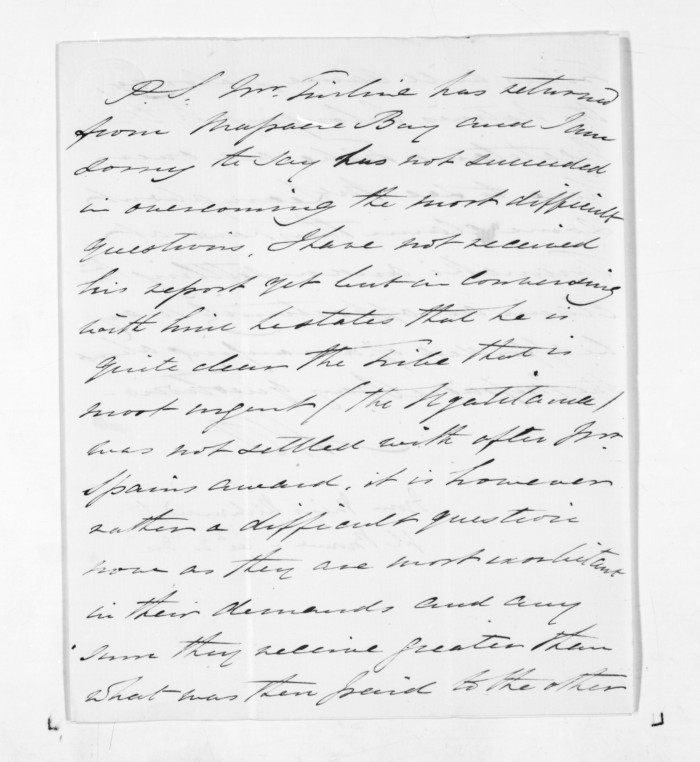 P.S. Mr. has returned
from Massacre Bay and I am
sorry to say has not succeeded
in overcoming the most difficult
questions, I have not received
his report yet but in conversing
with him he states that he is
quite clear the Tribe that is
most urgent (the Ngatitama)
was not settled with after Mr.
Spains award, it is however
rather a difficult question
now as they are most exorbitant
in their demands and any
sum they receive greater than
what was then paid to the other